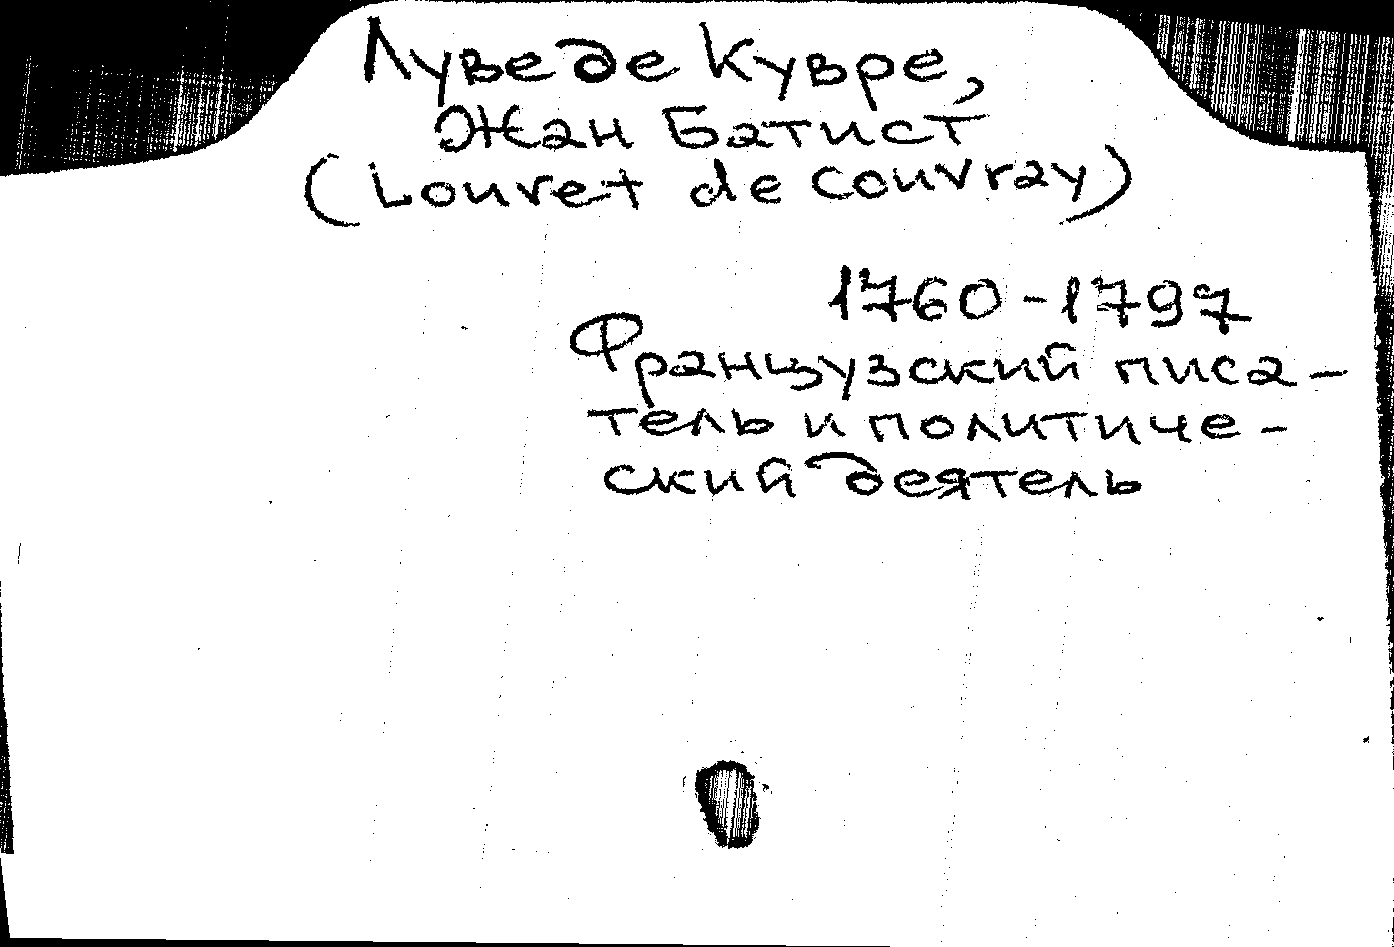 Луве де Кувре,
Жан Батист
(Louvet de Couvray)
1760-1797
Французский писа-
тель и политиче-
ский деятель